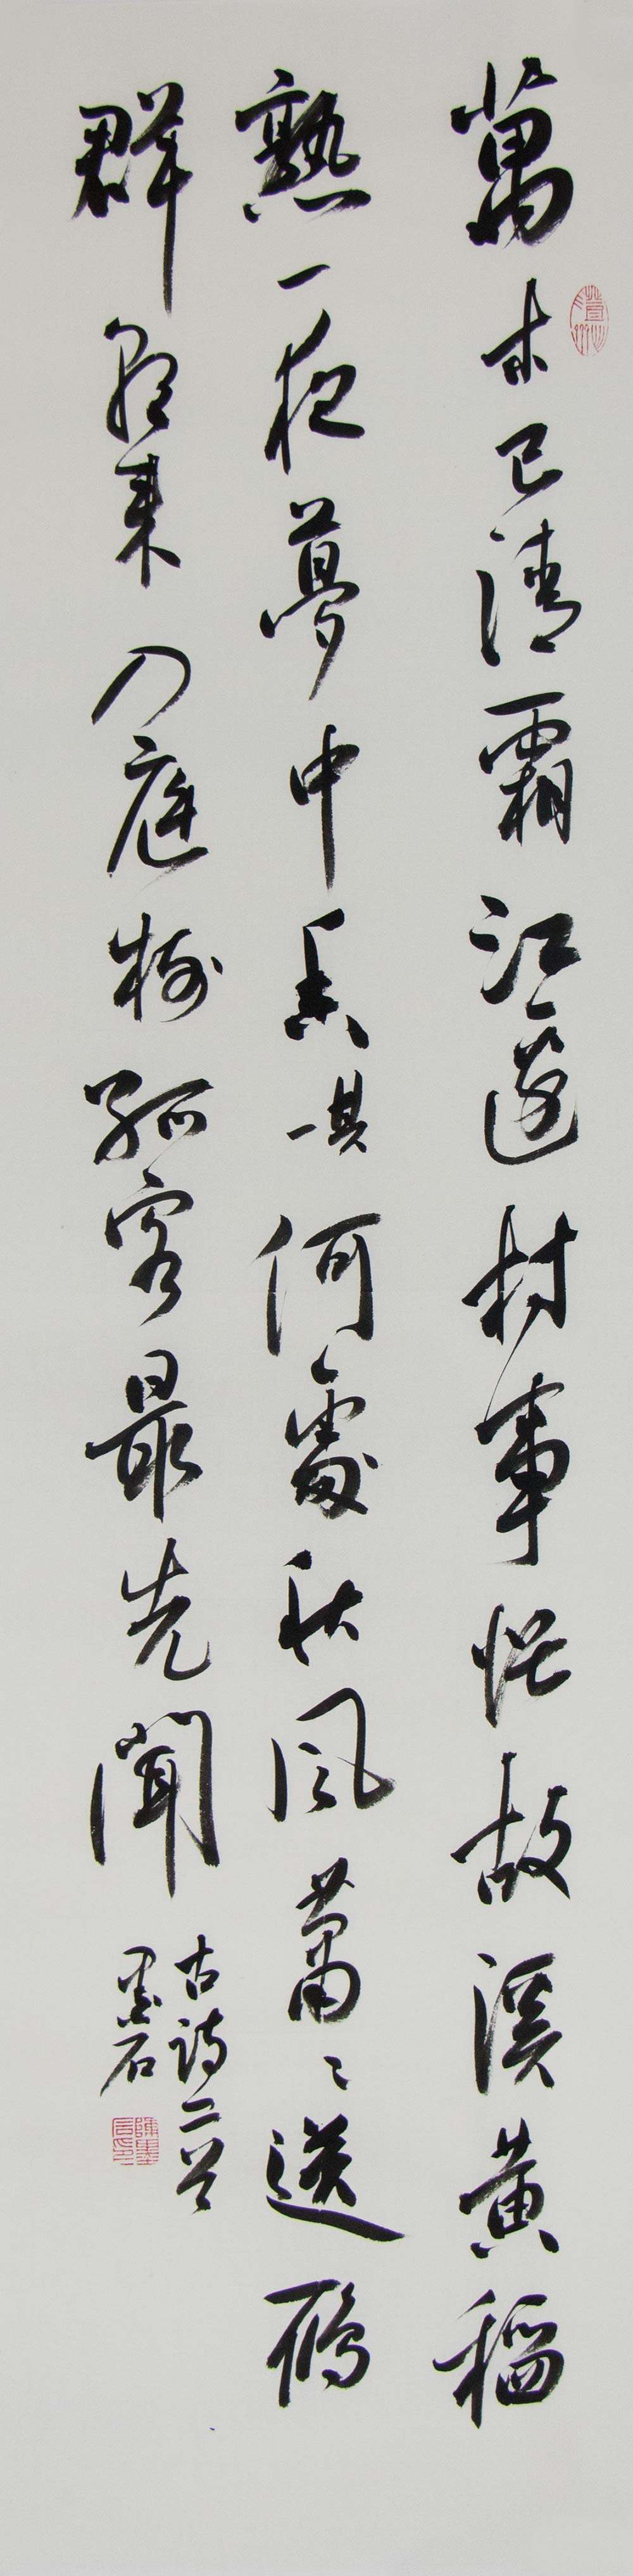 萬木已清霜江邊村事忙故溪黃稻
熟一夜夢中香其一何處秋風蕭〻送鴈
群朝來入庭樹孤客最先聞
古詩二首
墨石
陳墨石印